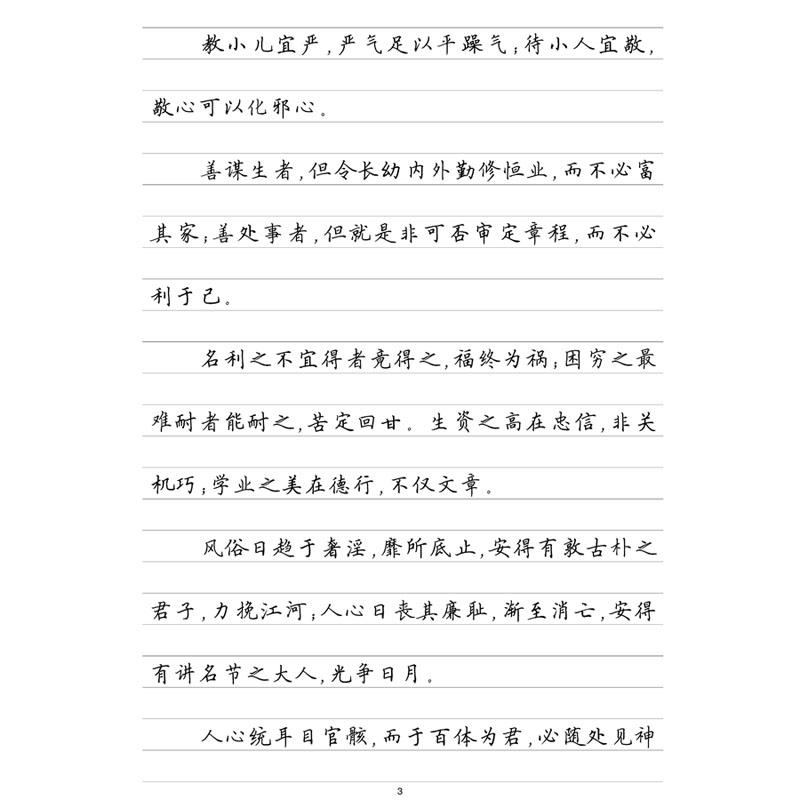 教小儿宜严,严气足以平躁气;待小人宜敬,
敬心可以化邪心。
善谋生者,但令长幼内外勤修恒业,而不必富
其家;善处事者,但就是非可否审定章程,而不必
利于己。
名利之不宜得者竟得之,福终为祸;困穷之最
难耐者能耐之,苦定回甘。生资之高在忠信,非关
机巧;学业之美在德行,不仅文章。
风俗日趋于奢淫,靡所底止,安得有敦古朴之
君子,力挽江河;人心日丧其廉耻,渐至消亡,安得
有讲名节之大人,光争日月。
人心统耳目官骸,而于百体为君,必随处见神
3